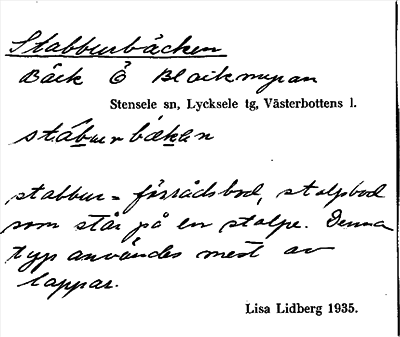 Stabburbäcken
Bäck Ö Blaikmyran
Stensele sn, Lycksele tg, Västerbottens l.
stábur bækan
stabbur = förrådsbod, stolpbod
som står på en stolpe. Denna
typ användes mest av
lappar.
Lisa Lidberg 1935.